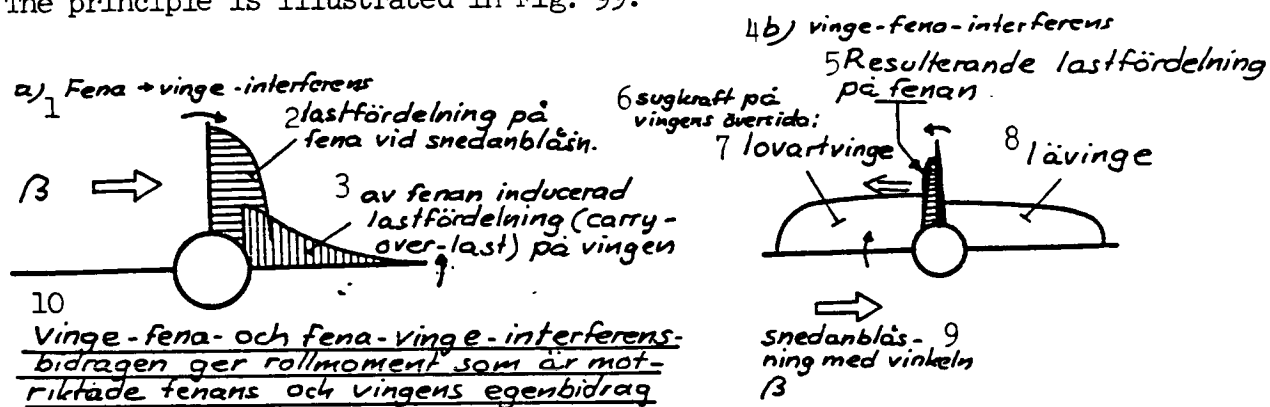 The principle is illustrated in Fig. 99.
a) Fena → vinge-interferens
1
2 lastfördelning på
fena vid snedanblåsn.
β
3 av fenan inducerad
lastfördelning (carry-
over-last) på vingen
10
Vinge-fena- och fena-vinge-interferens-
bidragen ger rollmoment som är mot-
riktade fenans och vingens egenbidrag
4b) vinge-fena-interferens
5 Resulterande lastfördelning
på fenan
6 sugkraft på
vingens översida:
7 lovartvinge
8 lävinge
snedanblås- 9
ning med vinkeln
β